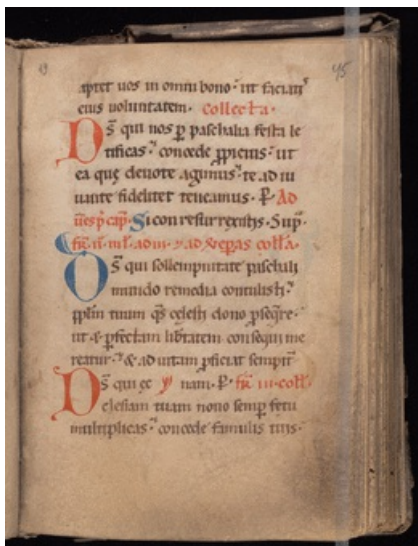 45
aptet uos in omni bono · ut faciatis
eius uoluntatem · Collecta ·
Ds̄ qui nos p paschalia festa le
tificas · concede ppicius · ut
ea que deuote agimus · te adiu
uante fideliter teneamus · P · Ad
uesp cap · Si conresurrexistis · Sup
ad uespas coll̄a ·
Ds̄ qui sollempnitate paschali
mundo remedia contulisti ·
pplm tuum qs̄ celesti dono pseqre ·
ut & pfectam libtatem consequi me
reatur · & ad uitam pficiat sempit̄
Ds̄ qui ec nam · P · fr̄ iii · coll̄
clesiam tuam nouo semp fetu
multiplicas · concede famulis tuis ·